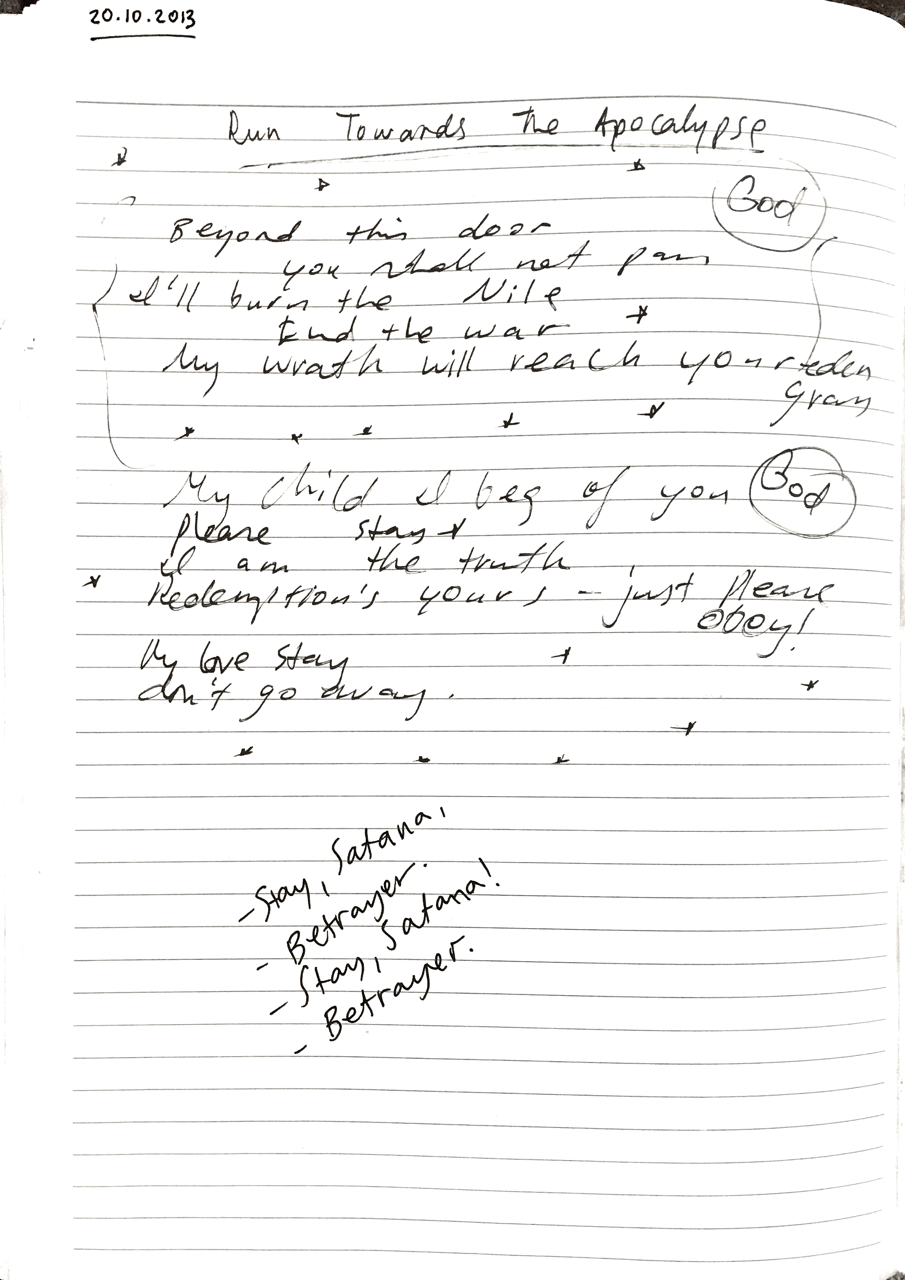 20.10.2013
Run Towards The Apocalypse
God
Beyond this door
you shall not pass
I'll burn the Nile
End the war
My wrath will reach your eden
grass
My child I beg of you God
Please stay
I am the truth
Redemption's yours – just please
obey!
My love stay
don't go away.
- Stay, Satana,
- Betrayer.
- Stay, Satana!
- Betrayer.